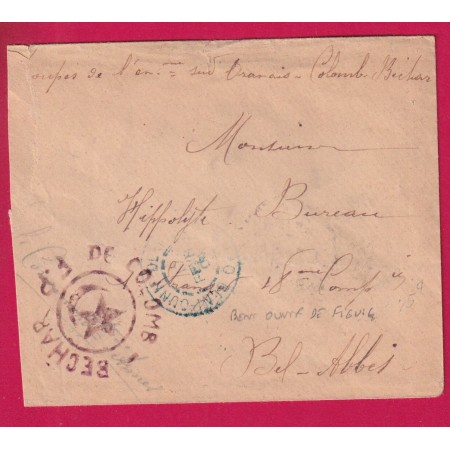 oupes de l'en:ne sud Oranais - Colomb Béchar
Monsieur
Hippolyte Bureau
18eme Comp
BENI OUNIF DE FIGUIG
Bel-Abbès
BECHAR DE COLOMB